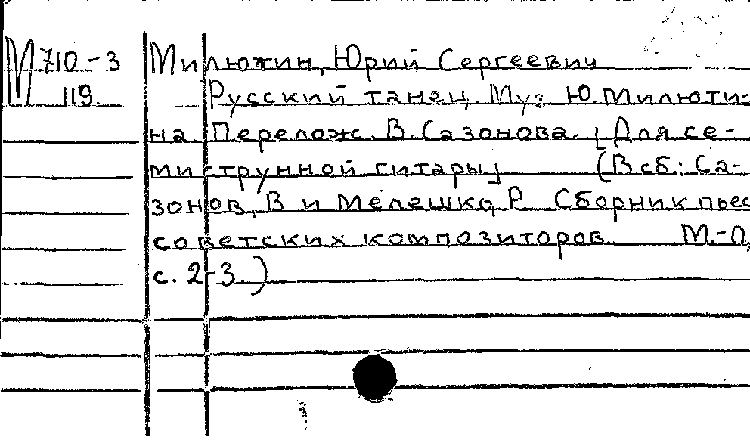 М 710-3
119.
Милютин, Юрий Сергеевич
Русский танец. Муз. Ю. Милюти-
на. Перелож. В. Сазонова. [Для се-
миструнной гитары] (В сб.: Са-
зонов, В и Мелешко, Р. Сборник пьес
советских композиторов. М.-Л,
с. 2-3.)